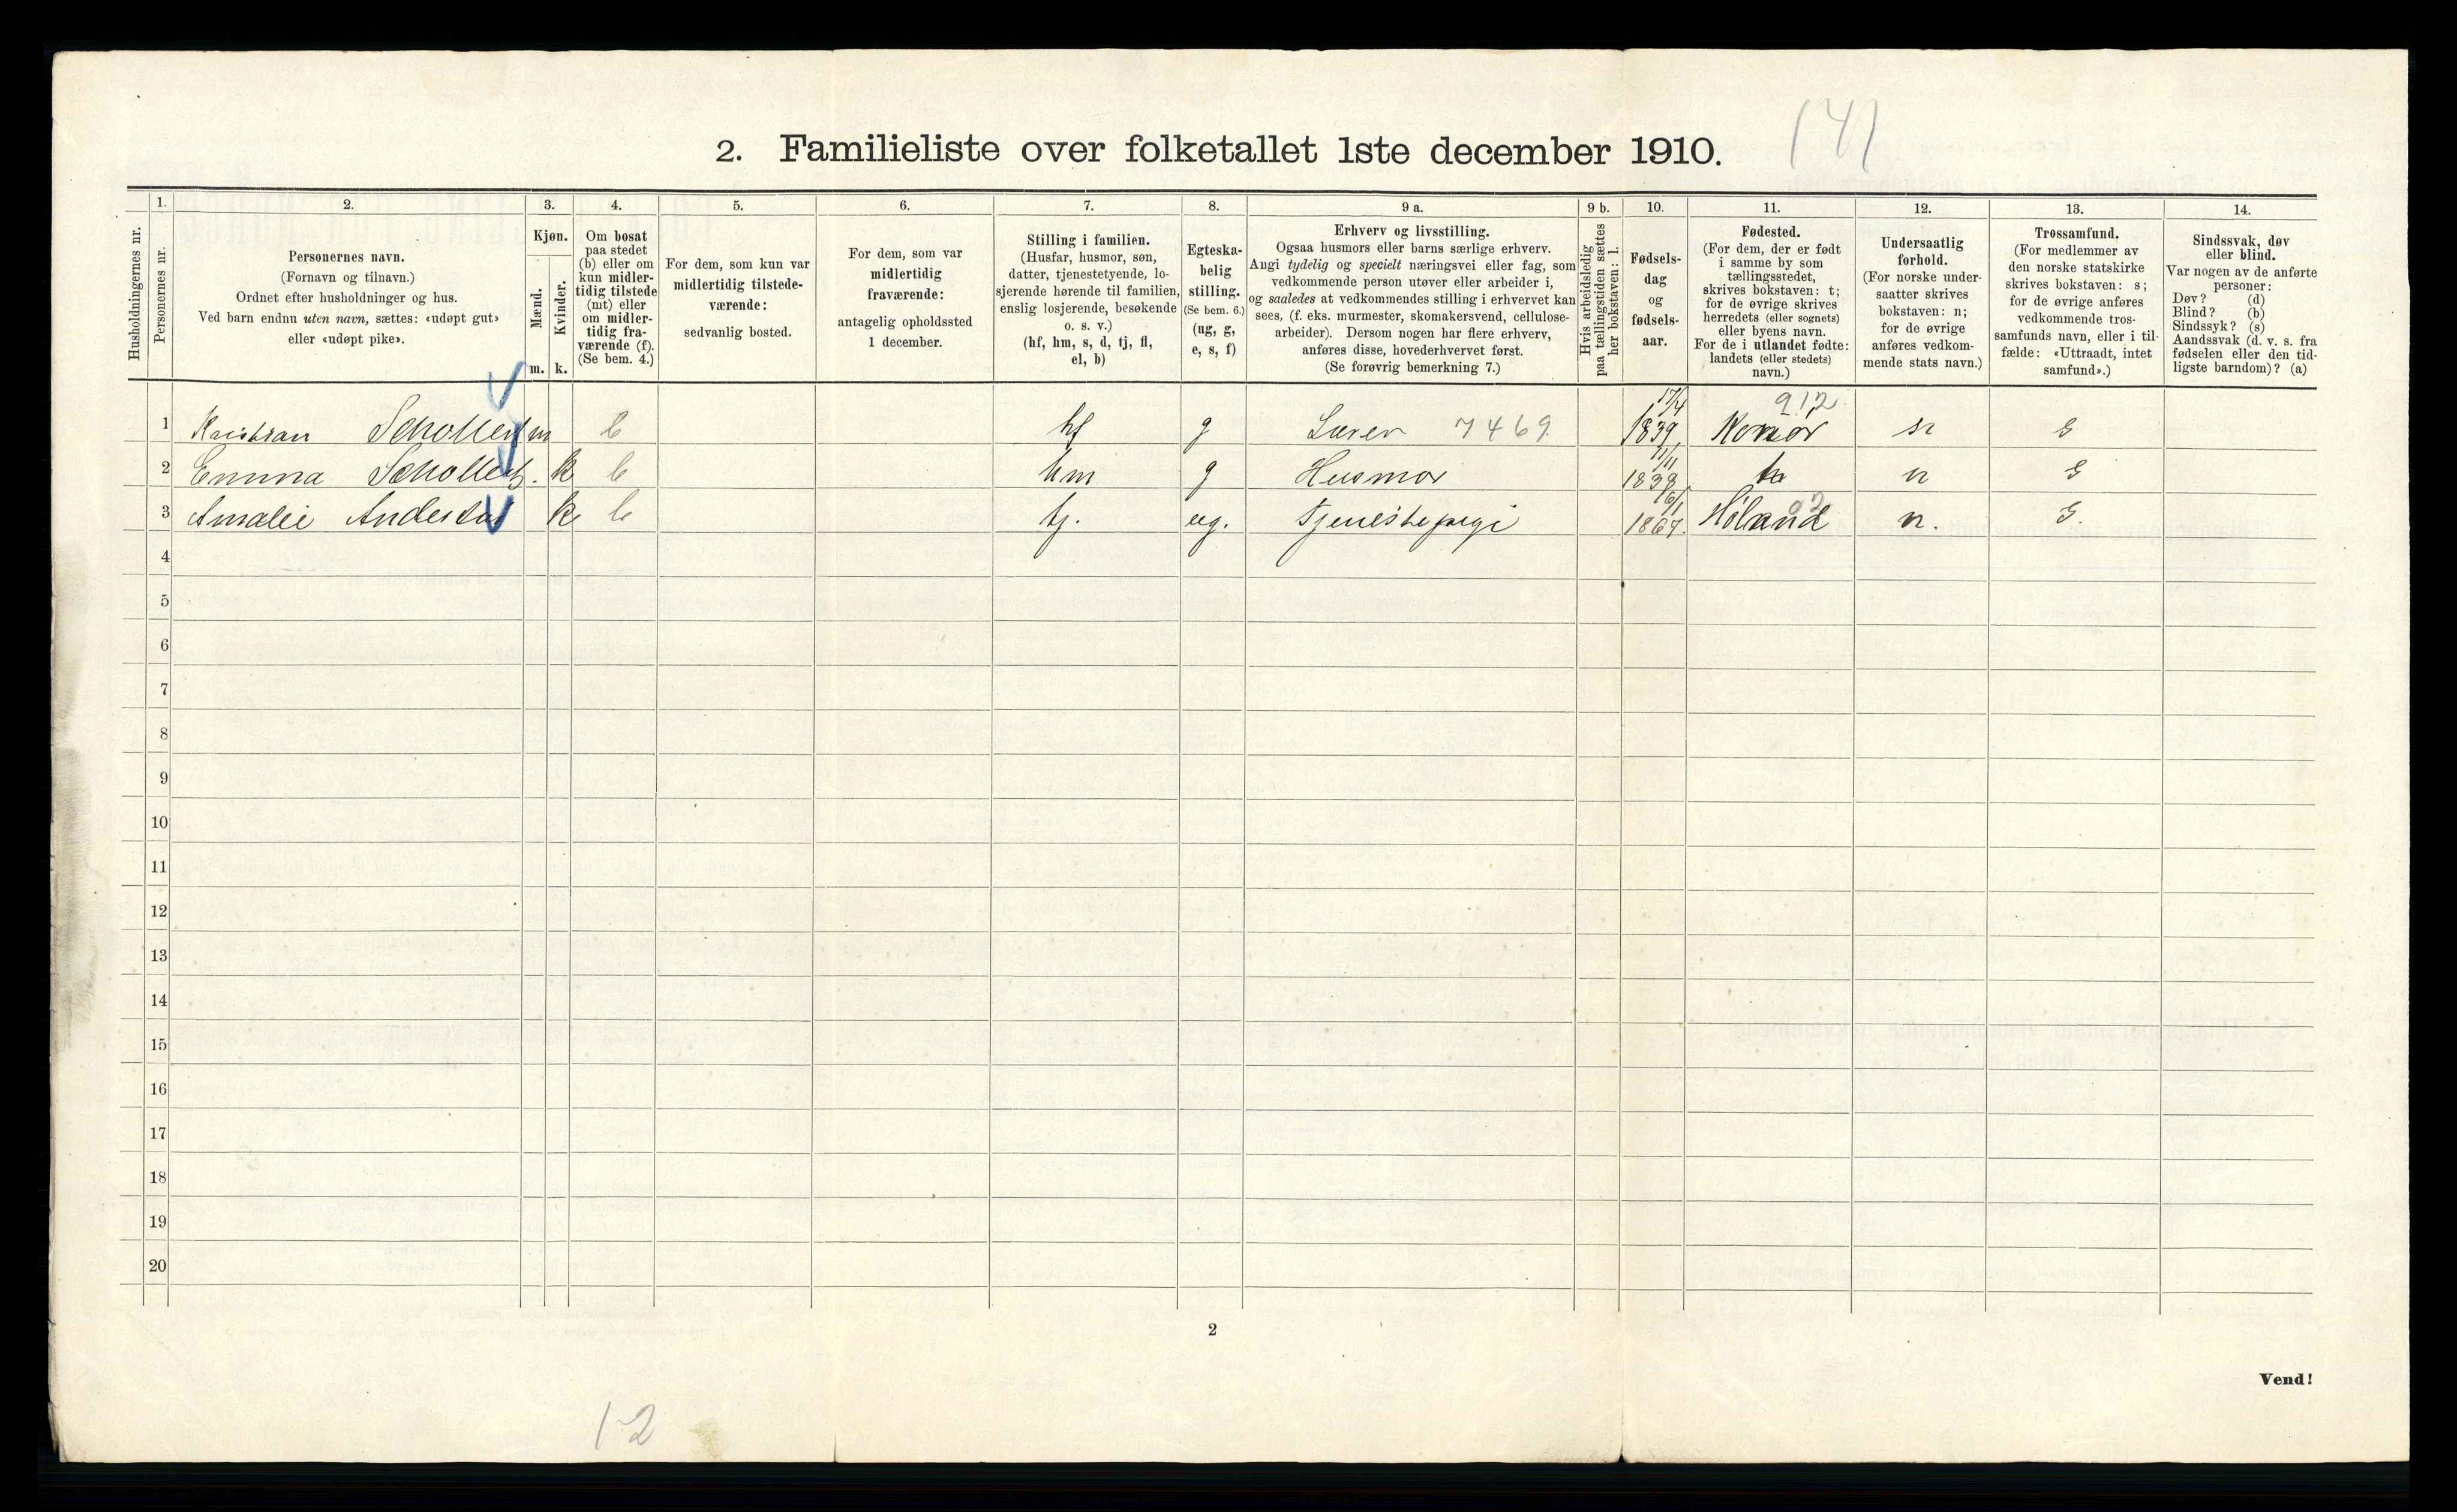 (4)
2. Familieliste over folketallet 1ste december 1910.
Husholdningernes nr.
1.
Personernes nr.
2.
Personernes navn.
(Fornavn og tilnavn.)
Ordnet efter husholdninger og hus.
Ved barn endnu uten navn, sættes: «udøpt gut»
eller «udøpt pike».
3.
Kjøn.
Mænd.
Kvinder.
m. k.
4.
Om bosat
paa stedet
(b) eller om
kun midler-
tidig tilstede
(mt) eller
om midler-
tidig fra-
værende (f).
(Se bem. 4.)
5.
For dem, som kun var
midlertidig tilstede-
værende:
sedvanlig bosted.
6.
For dem, som var
midlertidig
fraværende:
antagelig opholdssted
1 december.
7.
Stilling i familien.
(Husfar, husmor, søn,
datter, tjenestetyende, lo-
sjerende hørende til familien,
enslig losjerende, besøkende
o. s. v.)
(hf, hm, s, d, tj, fl,
el, b)
8.
Egteska-
belig
stilling.
(Se bem. 6.)
(ug, g,
e, s, f)
9 a.
Erhverv og livsstilling.
Ogsaa husmors eller barns særlige erhverv.
Angi tydelig og specielt næringsvei eller fag, som
vedkommende person utøver eller arbeider i,
og saaledes at vedkommendes stilling i erhvervet kan
sees, (f. eks. murmester, skomakersvend, cellulose-
arbeider). Dersom nogen har flere erhverv,
anføres disse, hovederhvervet først.
(Se forøvrig bemerkning 7.)
9 b.
Hvis arbeidsledig
paa tællingstiden sættes
her bokstaven: l.
10.
Fødsels-
dag
og
fødsels-
aar.
11.
Fødested.
(For dem, der er født
i samme by som
tællingsstedet,
skrives bokstaven: t;
for de øvrige skrives
herredets (eller sognets)
eller byens navn.
For de i utlandet fødte:
landets (eller stedets)
navn.)
12.
Undersaatlig
forhold.
(For norske under-
saatter skrives
bokstaven: n;
for de øvrige
anføres vedkom-
mende stats navn.)
13.
Trossamfund.
(For medlemmer av
den norske statskirke
skrives bokstaven: s;
for de øvrige anføres
vedkommende tros-
samfunds navn, eller i til-
fælde: «Uttraadt, intet
samfund».)
14.
Sindssvak, døv
eller blind.
Var nogen av de anførte
personer:
Døv? (d)
Blind? (b)
Sindssyk? (s)
Aandssvak (d. v. s. fra
fødselen eller den tid-
ligste barndom)? (a)
17/4 912
1 Kristian m b hf g 7469 1839 n
11/11
2 Emma k b hm g Husmor 1838 n
6/1 02
3 Amalie k b tj. ug. 1867. Høland n.
4
5
6
7
8
9
10
11
12
13
14
15
16
17
18
19
20
2
Vend!
1-2